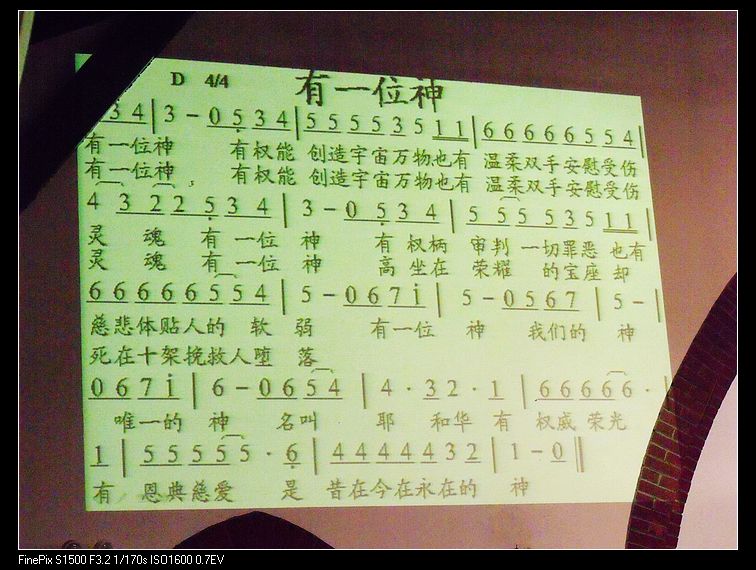 D 4/4 有一位神
3 4 | 3 - 0 5 3 4 | 5 5 5 5 3 5 1 1 | 6 6 6 6 6 5 5 4 |
有一位神 有权能 创造宇宙万物也有 温柔双手安慰受伤
有一位神 有权能 创造宇宙万物也有 温柔双手安慰受伤
4 3 2 2 5 3 4 | 3 - 0 5 3 4 | 5 5 5 5 3 5 1 1 |
灵 魂 有 一位 神 有 权柄 审判 一切罪恶 也有
灵 魂 有 一位 神 高 坐在 荣耀 的宝座 却
6 6 6 6 6 5 5 4 | 5 - 0 6 7 i | 5 - 0 5 6 7 | 5 -
慈悲体贴人的 软 弱 有一位 神 我们的 神
死在十架挽救人堕 落
0 6 7 i | 6 - 0 6 5 4 | 4 · 3 2 · 1 | 6 6 6 6 6 ·
唯一的 神 名叫 耶 和华 有 权威 荣光
1 | 5 5 5 5 5 · 6 | 4 4 4 4 4 3 2 | 1 - 0 ‖
有 恩典慈爱 是 昔在今在永在的 神
FinePix S1500 F3.2 1/170s ISO1600 0.7EV